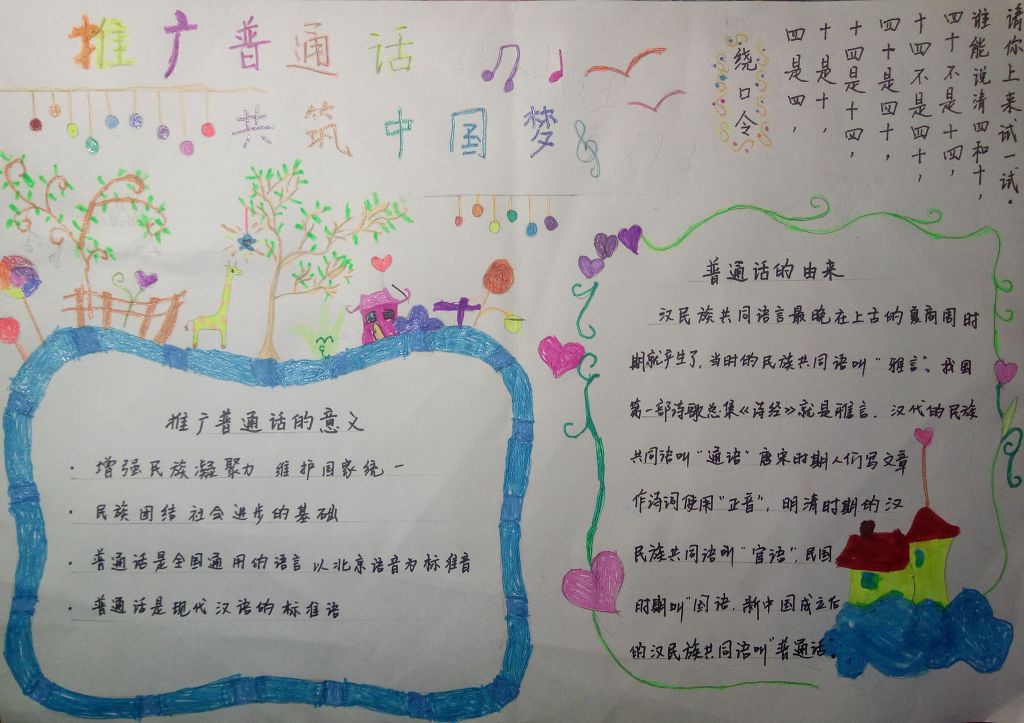 推广普通话
共筑中国梦
绕口令
四是四，
十是十，
十四是十四，
四十是四十，
十四不是四十，
四十不是十四，
谁能说清四和十，
请你上来试一试。
推广普通话的意义
· 增强民族凝聚力 维护国家统一
· 民族团结 社会进步的基础
· 普通话是全国通用的语言 以北京语音为标准音
· 普通话是现代汉语的标准语
普通话的由来
汉民族共同语言最晚在上古的夏商周时
期就产生了，当时的民族共同语叫“雅言”。我国
第一部诗歌总集《诗经》就是雅言．汉代的民族
共同语叫“通语”唐宋时期人们写文章
作诗词使用“正音”，明清时期的汉
民族共同语叫“官话”，民国
时期叫“国语．新中国成立后
的汉民族共同语叫“普通话”